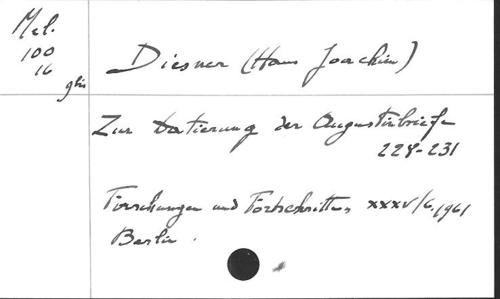 Mel.
100
16
gbis
Diesner (Hans Joachim)
Zur Datierung der Augustinbriefe
228-231
Forschungen und Fortschritte, XXXV/6, 1961
Berlin.